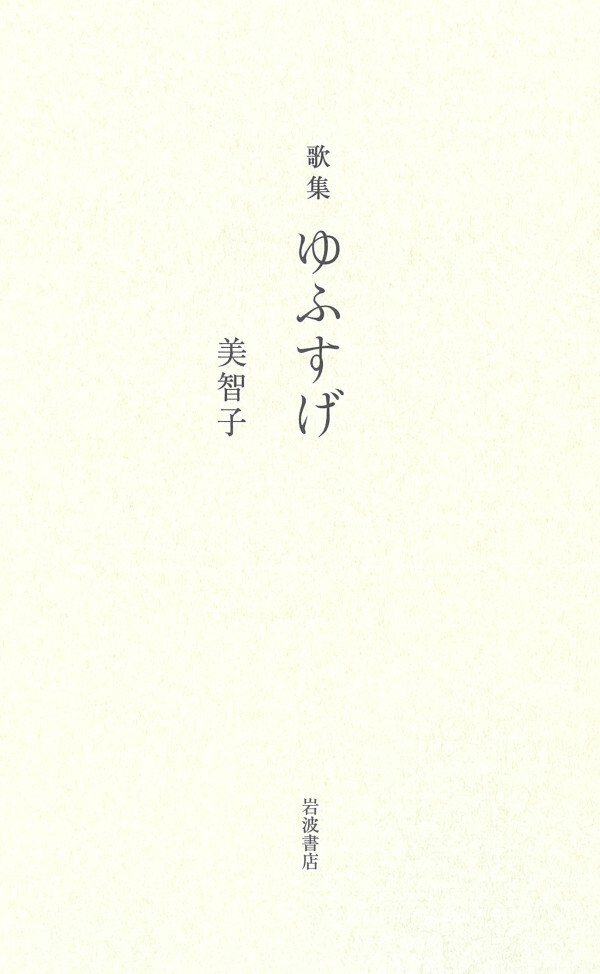 歌集 ゆふすげ
美智子
岩波書店